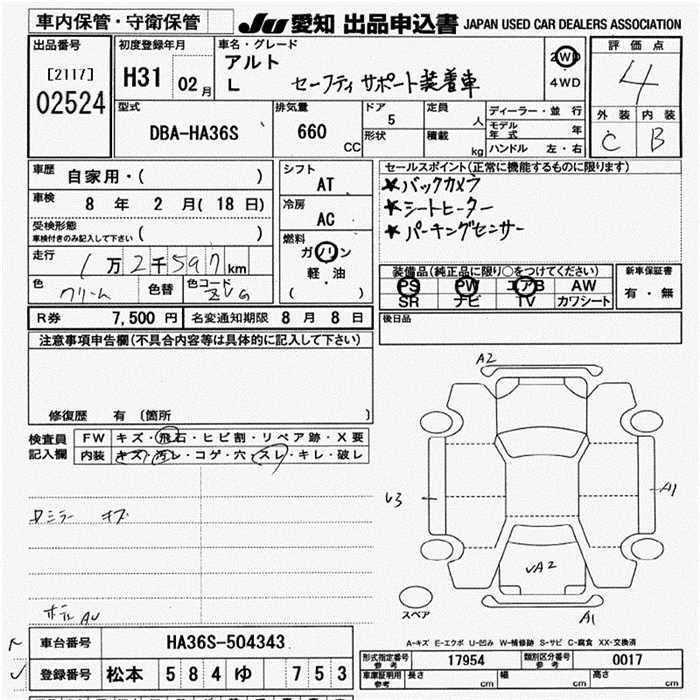 車内保管・守衛保管
JU 愛知 出品申込書 JAPAN USED CAR DEALERS ASSOCIATION
出品番号
[2117]
02524
初度登録年月
H31 02月
車名・グレード
アルト
L セーフティ サポート装着車
2WD
4WD
評価点
4
外装 内装
C B
型式
DBA-HA36S
排気量
660
CC
ドア
5
形状
定員
人
積載
kg
ディーラー・並行
モデル年式 年
ハンドル 左・右
車歴
自家用・( )
車検
8 年 2 月( 18 日)
受検形態
車検付きのみ記入して下さい ( )
走行
1万2千597km
色
クリーム
色替
色コード
ZVG
シフト
AT
冷房
AC
燃料
ガソリン
軽・油
( )
セールスポイント(正常に機能するものに限ります)
★バックカメラ
★シートヒーター
★パーキングセンサー
装備品(純正品に限り○をつけてください)
PS PW エアB AW
SR ナビ TV カワシート
新車保証書
有・無
後日品
R券 7,500 円 名変通知期限 8 月 8 日
注意事項申告欄(不具合内容等は具体的に記入して下さい)
修復歴 有 (箇所 )
検査員
記入欄
FW キズ・飛石・ヒビ割・リペア跡・X要
内装 キズ・汚レ・コゲ・穴・スレ・キレ・破レ
ミラー キズ
A2
U3
A1
A2
A1
スペア
A-キズ E-エクボ U-凹み W-補修跡 S-サビ C-腐食 XX-交換済
車台番号 HA36S-504343
登録番号 松本 584 ゆ 753
形式指定番号 参考 17954 類別区分番号 参考 0017
車庫証明用 参考 長さ cm 幅 cm 高さ cm